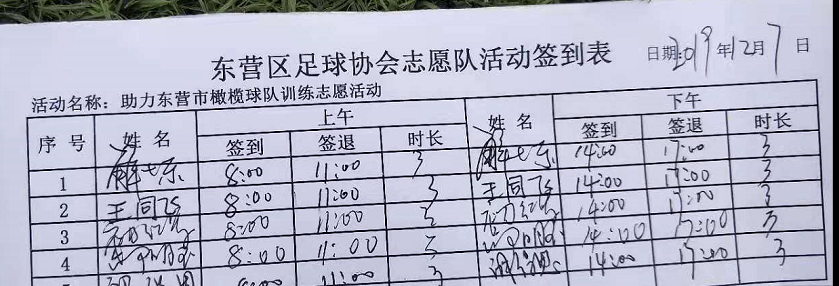 东营区足球协会志愿队活动签到表 日期:2019年12月7日
活动名称：助力东营市橄榄球队训练志愿活动
序号 姓名 上午 姓名 下午
签到 签退 时长 签到 签退 时长
1 8:00 11:00 3 14:00 17:00 3
2 王同飞 8:00 11:00 3 王同飞 14:00 17:00 3
3 8:00 11:00 3 14:00 17:00 3
4 8:00 11:00 3 14:00 17:00 3
8:00 11:00 3 14:00 17:00 3